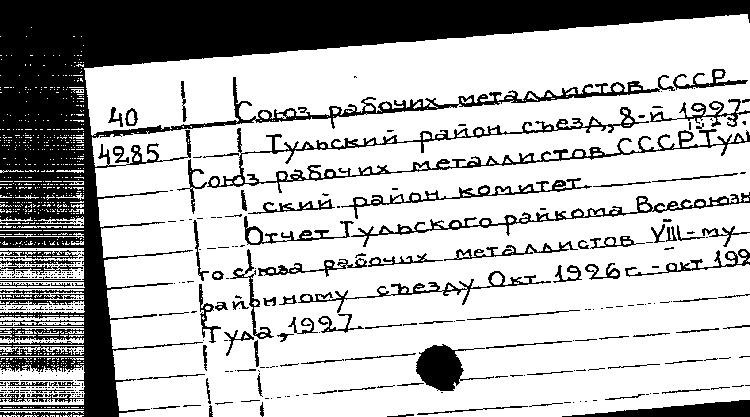 40 Союз рабочих металлистов СССР.
Тульский район. съезд, 8-й 1927.
4285
Союз рабочих металлистов СССР. Туль
ский район. комитет.
Отчет Тульского райкома Всесоюзн
го союза рабочих металлистов VIII-му
районному съезду Окт. 1926 г. - окт. 192
Тула, 1927.